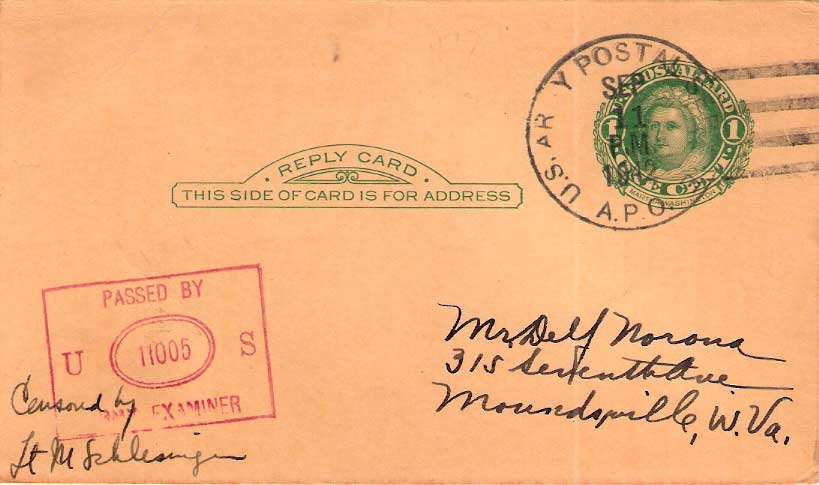 U.S. AR Y POSTAL S
A.P.O.
SEP
11
P.M.
1942
U.S. POSTAL CARD
1 1
ONE CENT
MARTHA WASHINGTON
REPLY CARD
THIS SIDE OF CARD IS FOR ADDRESS
PASSED BY
U 11005 S
ARMY EXAMINER
Censored by
Lt M Schlesinger
Mr Delf Norona
315 Seventh Ave
Moundsville, W. Va.